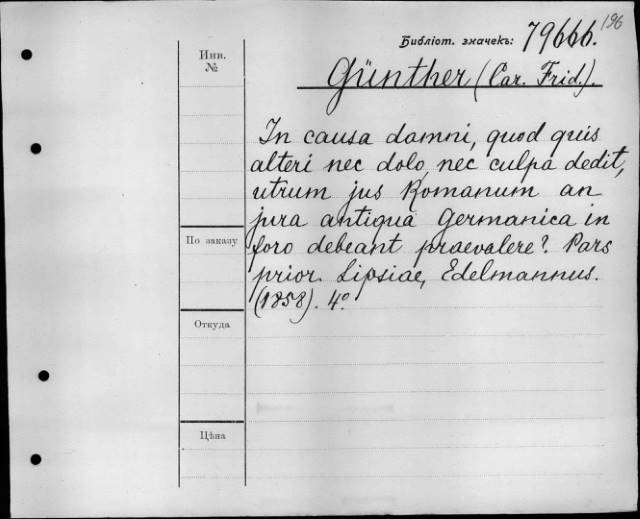 196
Библіот. значекъ: 79666.
Инв.
№
Günther (Car. Frid.).
In causa damni, quod quis
alteri nec dolo, nec culpa dedit,
utrum jus Romanum an
jura antiqua Germanica in
foro debeant praevalere? Pars
prior. Lipsiae, Edelmannus.
(1858). 4º.
По заказу
Откуда
Цѣна